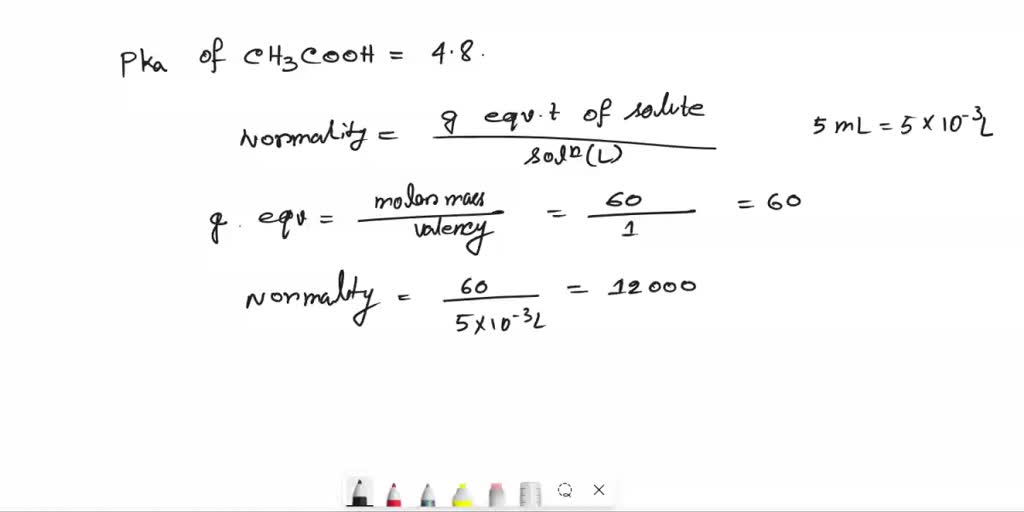 Pka of CH3COOH = 4.8.
Normality = g equv.t of solute / soln (L)
5 mL = 5 × 10⁻³L
g. equv = molar mass / valency = 60 / 1 = 60
Normality = 60 / 5×10⁻³L = 12000